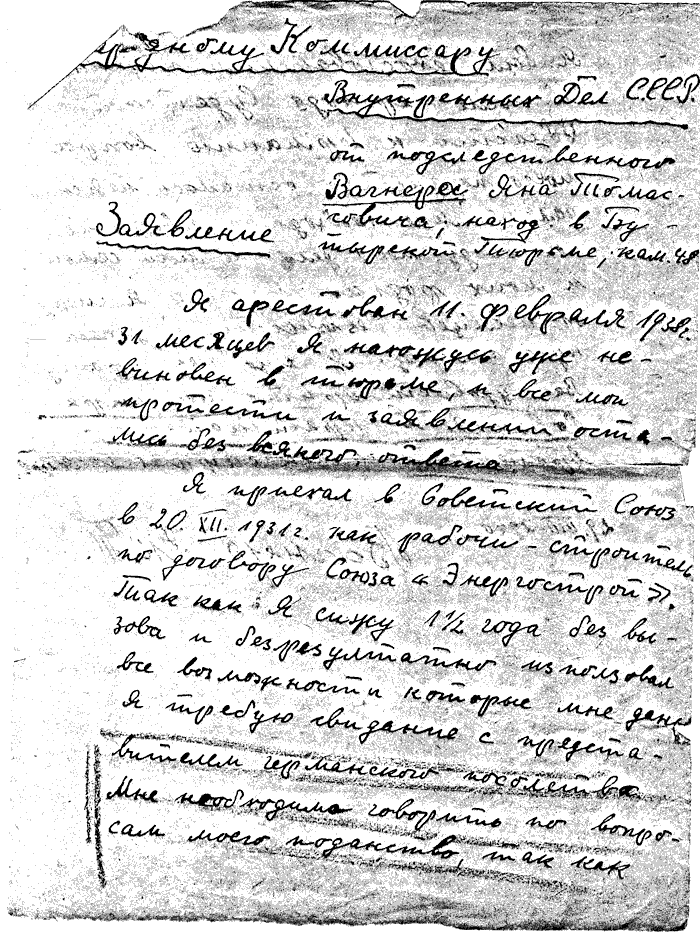 одному Коммиссару
Внутренных Дел С.С.С.Р.
от подследственного
Вагнерес Яна Томас-
Заявление
совича, наход. в Бу-
тырской Тюрьме, кам. 48
Я арестован 11. февраля 1938г.
31 месяцев Я нахожусь уже не-
виновен в тюрьме, и все мои
протести и заявлении оста-
лись без всякого ответа
Я приехал в Советский Союз
в 20. XII. 1931г. как рабочи-строитель
по договору Союза « Энергострой ».
Так как Я сижу 1½ года без вы-
зова и безрезултатно использовал
все возможности которые мне даны
Я требую свидание с предста-
вителем германского посолства
Мне необходима говорить по вопро-
сам моего поданство, так как